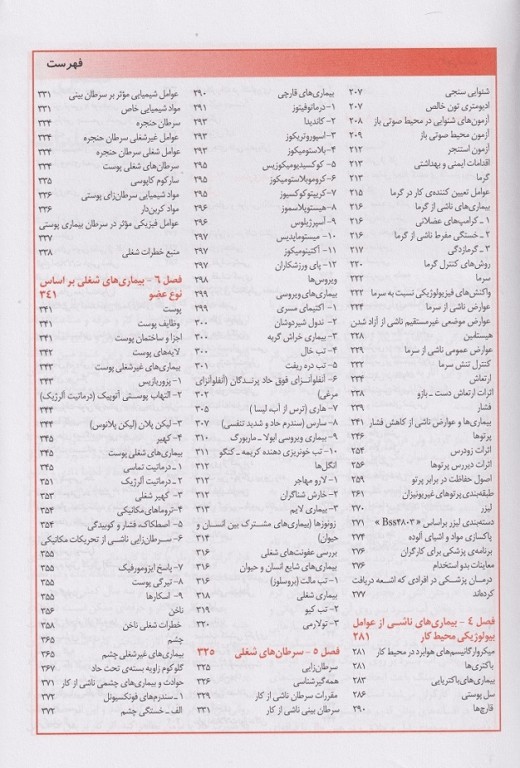 فهرست
شنوایی سنجی ۲۰۷
ادیومتری تون خالص ۲۰۷
آزمون‌های شنوایی در محیط صوتی باز ۲۰۸
آزمون محیط صوتی باز ۲۰۹
آزمون استنجر ۲۱۲
اقدامات ایمنی و بهداشتی ۲۱۳
گرما ۲۱۳
عوامل تعیین کننده‌ی کار در گرما ۲۱۵
بیماری‌های ناشی از گرما ۲۱۶
۱- کرامپ‌های عضلانی ۲۱۶
۲- خستگی مفرط ناشی از گرما ۲۱۶
۳- گرمازدگی ۲۱۷
روش‌های کنترل گرما ۲۲۰
سرما ۲۲۲
واکنش‌های فیزیولوژیکی نسبت به سرما ۲۲۲
عوارض ناشی از سرما ۲۲۴
عوارض موضعی غیرمستقیم ناشی از آزاد شدن
هیستامین ۲۲۸
عوارض عمومی ناشی از سرما ۲۲۹
کنترل تنش سرما ۲۳۲
ارتعاش ۲۳۴
اثرات ارتعاش دست ـ بازو ۲۳۸
فشار ۲۳۹
بیماری‌ها و عوارض ناشی از کاهش فشار ۲۴۱
پرتوها ۲۴۶
اثرات زودرس ۲۵۴
اثرات دیررس پرتوها ۲۵۶
اصول حفاظت در برابر پرتو ۲۵۹
طبقه‌بندی پرتوهای غیریونیزان ۲۶۱
لیزر ۲۷۰
دسته‌بندی لیزر براساس «Bss۴۸۰۳» ۲۷۱
پاکسازی مواد و اشیای آلوده ۲۷۴
برنامه‌ی پزشکی برای کارگران ۲۷۶
معاینات بدو استخدام ۲۷۶
درمان پزشکی در افرادی که اشعه دریافت
کرده‌اند ۲۷۷
فصل ۴ - بیماری‌های ناشی از عوامل
بیولوژیکی محیط کار ۲۸۱
میکروارگانیسم‌های هوابرد در محیط کار ۲۸۱
باکتری‌ها ۲۸۱
بیماری‌های‌باکتریایی ۲۸۳
سل پوستی ۲۸۶
قارچ‌ها ۲۹۰
بیماری‌های قارچی ۲۹۰
۱- درماتوفیتوز ۲۹۱
۲- کاندیدا ۲۹۳
۳- اسپوروتریکوز ۲۹۳
۴- بلاستومیکوز ۲۹۴
۵- کوکسیدیومیکوزیس ۲۹۵
۶- کروموبلاستومیکوز ۲۹۵
۷- کریپتوکوکسیوز ۲۹۵
۸- هیستوپلاسموز ۲۹۶
۹- آسپرژیلوس ۲۹۶
۱۰- میستومایدیس ۲۹۷
۱۱- آکتینومیکوز ۲۹۷
۱۲- پای ورزشکاران ۲۹۷
ویروس‌ها ۲۹۸
بیماری‌های ویروسی ۲۹۹
۱- اکتیمای مسری ۲۹۹
۲- ندول شیردوشان ۳۰۰
۳- بیماری خراش گربه ۳۰۰
۴- تب خال ۳۰۰
۵- تب دره ریفت ۳۰۱
۶- آنفلوآنزای فوق حاد پرندگان (آنفلوآنزای
مرغی) ۳۰۲
۷- هاری (ترس از آب، لیسا) ۳۰۵
۸- سارس (سندرم حاد و شدید تنفسی) ۳۰۷
۹- بیماری ویروسی ابولا ـ ماربورگ ۳۱۰
۱۰- تب خونریزی دهنده کریمه ـ کنگو ۳۱۱
انگل‌ها ۳۱۲
۱- لارو مهاجر ۳۱۲
۲- خارش شناگران ۳۱۲
۳- بیماری لایم ۳۱۳
زونوزها (بیماری‌های مشترک بین انسان و
حیوان) ۳۱۴
بررسی عفونت‌های شغلی ۳۱۶
بیماری‌های شایع انسان و حیوان ۳۱۶
۱- تب مالت (بروسلوز) ۳۱۶
بیماری شغلی ۳۱۸
۲- تب کیو ۳۱۹
۳- تولارمی ۳۲۰
فصل ۵ - سرطان‌های شغلی ۳۲۵
سرطان‌زایی ۳۲۵
همه‌گیرشناسی ۳۲۶
مقررات سرطان ناشی از کار ۳۲۹
سرطان بینی ناشی از کار ۳۳۱
عوامل شیمیایی مؤثر بر سرطان بینی ۳۳۱
مواد شیمیایی خاص ۳۳۱
سرطان حنجره ۳۳۴
عوامل غیرشغلی سرطان حنجره ۳۳۴
عوامل شغلی سرطان حنجره ۳۳۴
سرطان‌های شغلی پوست ۳۳۴
سارکوم کاپوسی ۳۳۵
مواد شیمیایی سرطان‌زای پوستی ۳۳۶
مواد کربن‌دار ۳۳۶
عوامل فیزیکی مؤثر در سرطان بیماری پوستی
۳۳۷
منبع خطرات شغلی ۳۳۸
فصل ۶ - بیماری‌های شغلی بر اساس
نوع عضو ۳۴۱
پوست ۳۴۱
وظایف پوست ۳۴۱
اجزا و ساختمان پوست ۳۴۱
لایه‌های پوست ۳۴۲
بیماری‌های غیرشغلی پوست ۳۴۳
۱- پزوریازیس ۳۴۳
۲- التهاب پوستی آتوپیک (درماتیت آلرژیک)
۳۴۴
۳- لیکن پلان (لیکن پلانوس) ۳۴۴
۴- کهیر ۳۴۵
بیماری‌های شغلی پوست ۳۴۵
۱- درماتیت تماسی ۳۴۵
۲- درماتیت آلرژیک ۳۵۱
۳- کهیر شغلی ۳۵۳
۴- تروماهای‌مکانیکی ۳۵۴
۵- اصطکاک، فشار و کوبیدگی ۳۵۴
۶- سرطان‌زایی ناشی از تحریکات مکانیکی
۳۵۵
۷- پاسخ ایزومورفیک ۳۵۵
۸- تیرگی پوست ۳۵۵
۹- اسکارها ۳۵۵
ناخن ۳۵۶
خطرات شغلی ناخن ۳۵۸
چشم ۳۶۵
بیماری‌های غیرشغلی چشم ۳۶۵
گلوکوم زاویه بسته‌ی تحت حاد ۳۶۷
حوادث و بیماری‌های چشمی ناشی از کار ۳۷۱
۱- سندرم‌های فونکسیونل ۳۷۲
الف ـ خستگی چشم ۳۷۲